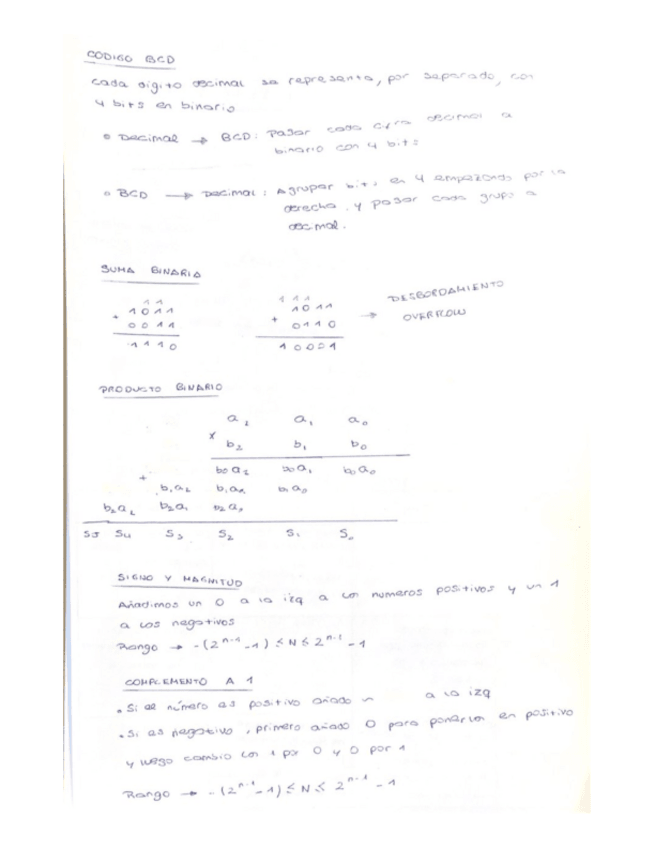 CODIGO BCD
cada digito decimal se representa, por separado, con
4 bits en binario
Decimal → BCD: Pasar cada cifra decimal a
binario con 4 bits
BCD → Decimal: Agrupar bits en 4 empezando por la
derecha y pasar cada grupo a
decimal.
SUMA BINARIA
1 1
1 0 1 1
+ 0 0 1 1
1 1 1 0
1 1 1
1 0 1 1
+ 0 1 1 0
1 0 0 0 1
→ DESBORDAMIENTO
OVERFLOW
PRODUCTO BINARIO
a₂ a₁ a₀
x b₂ b₁ b₀
b₀a₂ b₀a₁ b₀a₀
+ b₁a₂ b₁a₁ b₁a₀
b₂a₂ b₂a₁ b₂a₀
S5 S4 S₃ S₂ S₁ S₀
SIGNO Y MAGNITUD
Añadimos un 0 a la izq a los numeros positivos y un 1
a los negativos
Rango → -(2ⁿ⁻¹-1) ≤ N ≤ 2ⁿ⁻¹-1
COMPLEMENTO A 1
• Si el número es positivo añado a la izq
• Si es negativo, primero añado 0 para ponerlos en positivo
y luego cambio los 1 por 0 y 0 por 1
Rango → -(2ⁿ⁻¹-1) ≤ N ≤ 2ⁿ⁻¹-1